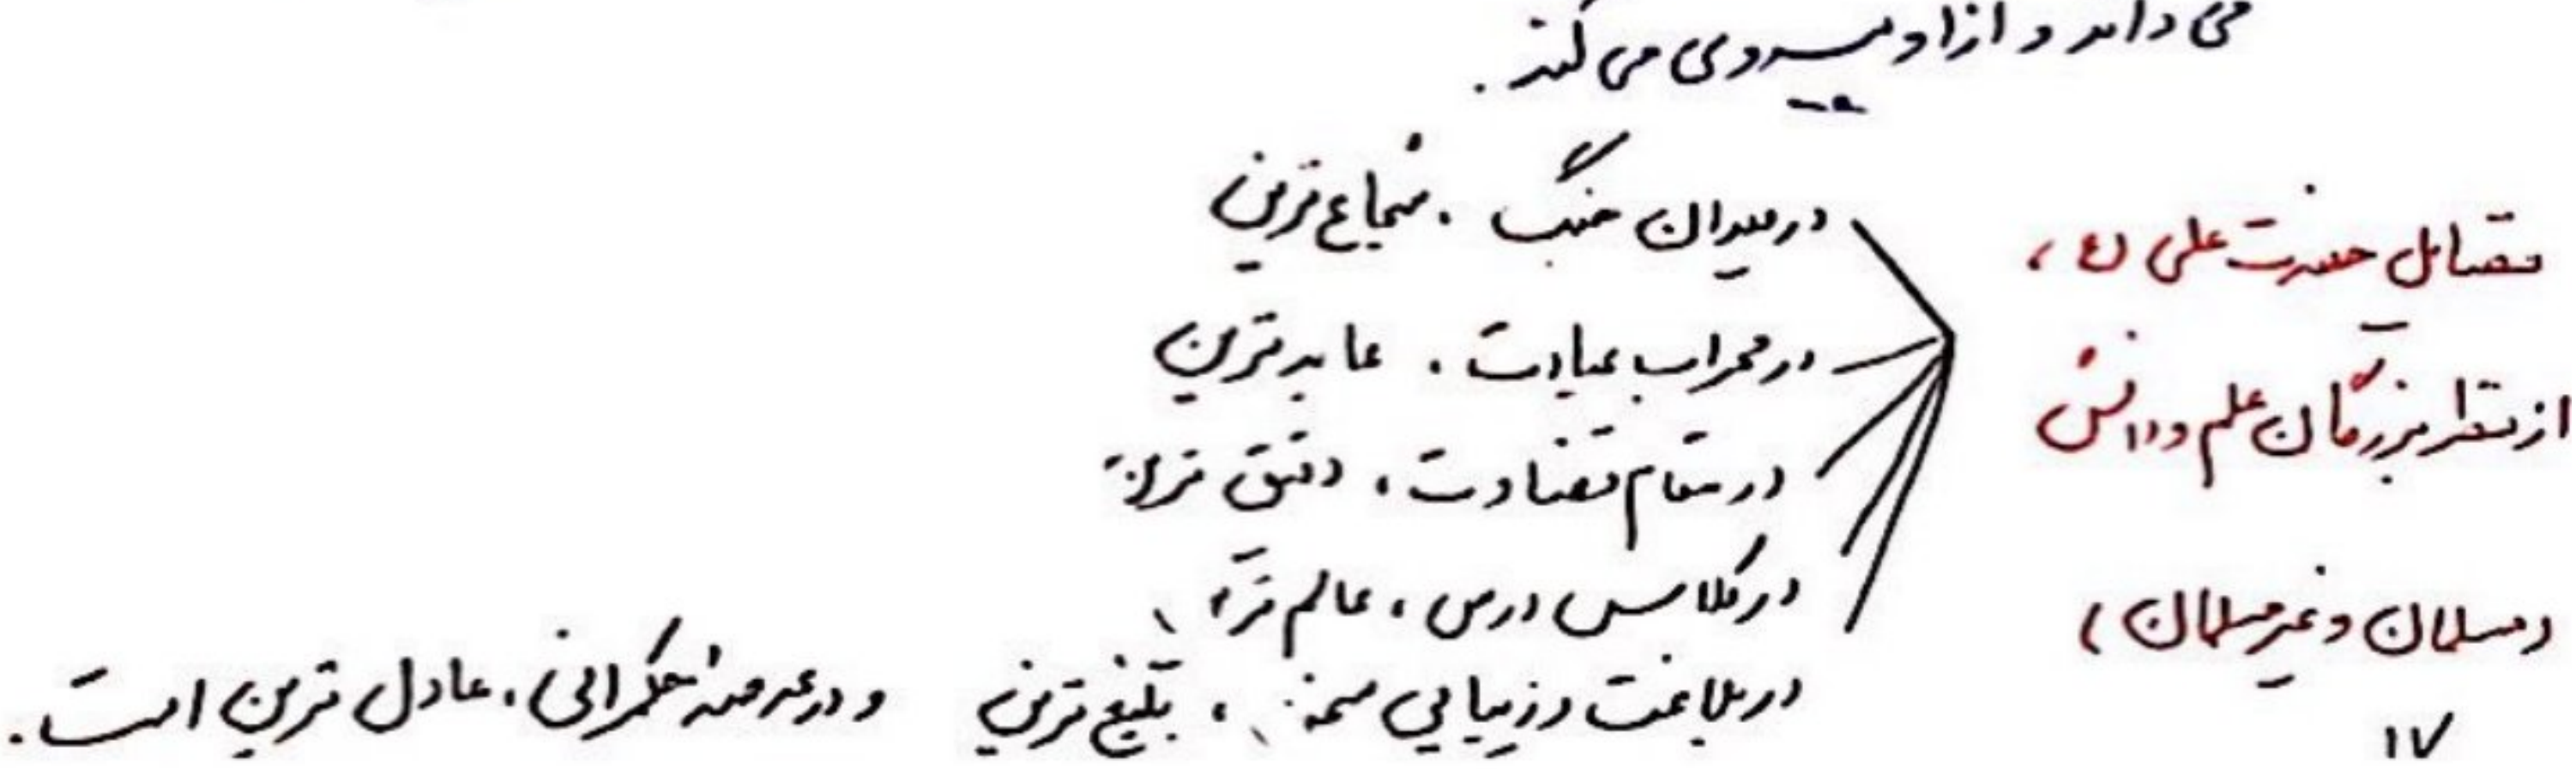 می داند و از او پیروی می کند.
فضایل حضرت علی (ع)
از نظر بزرگان علم و دانش
(مسلمان و غیر مسلمان)
۱۷
در میدان جنگ، شجاع ترین
در محراب عبادت، عابد ترین
در مقام قضاوت، دقیق ترین
در کلاس درس، عالم ترین
در بلاغت و زیبایی سخن، بلیغ ترین و در عرصه حکمرانی، عادل ترین است.